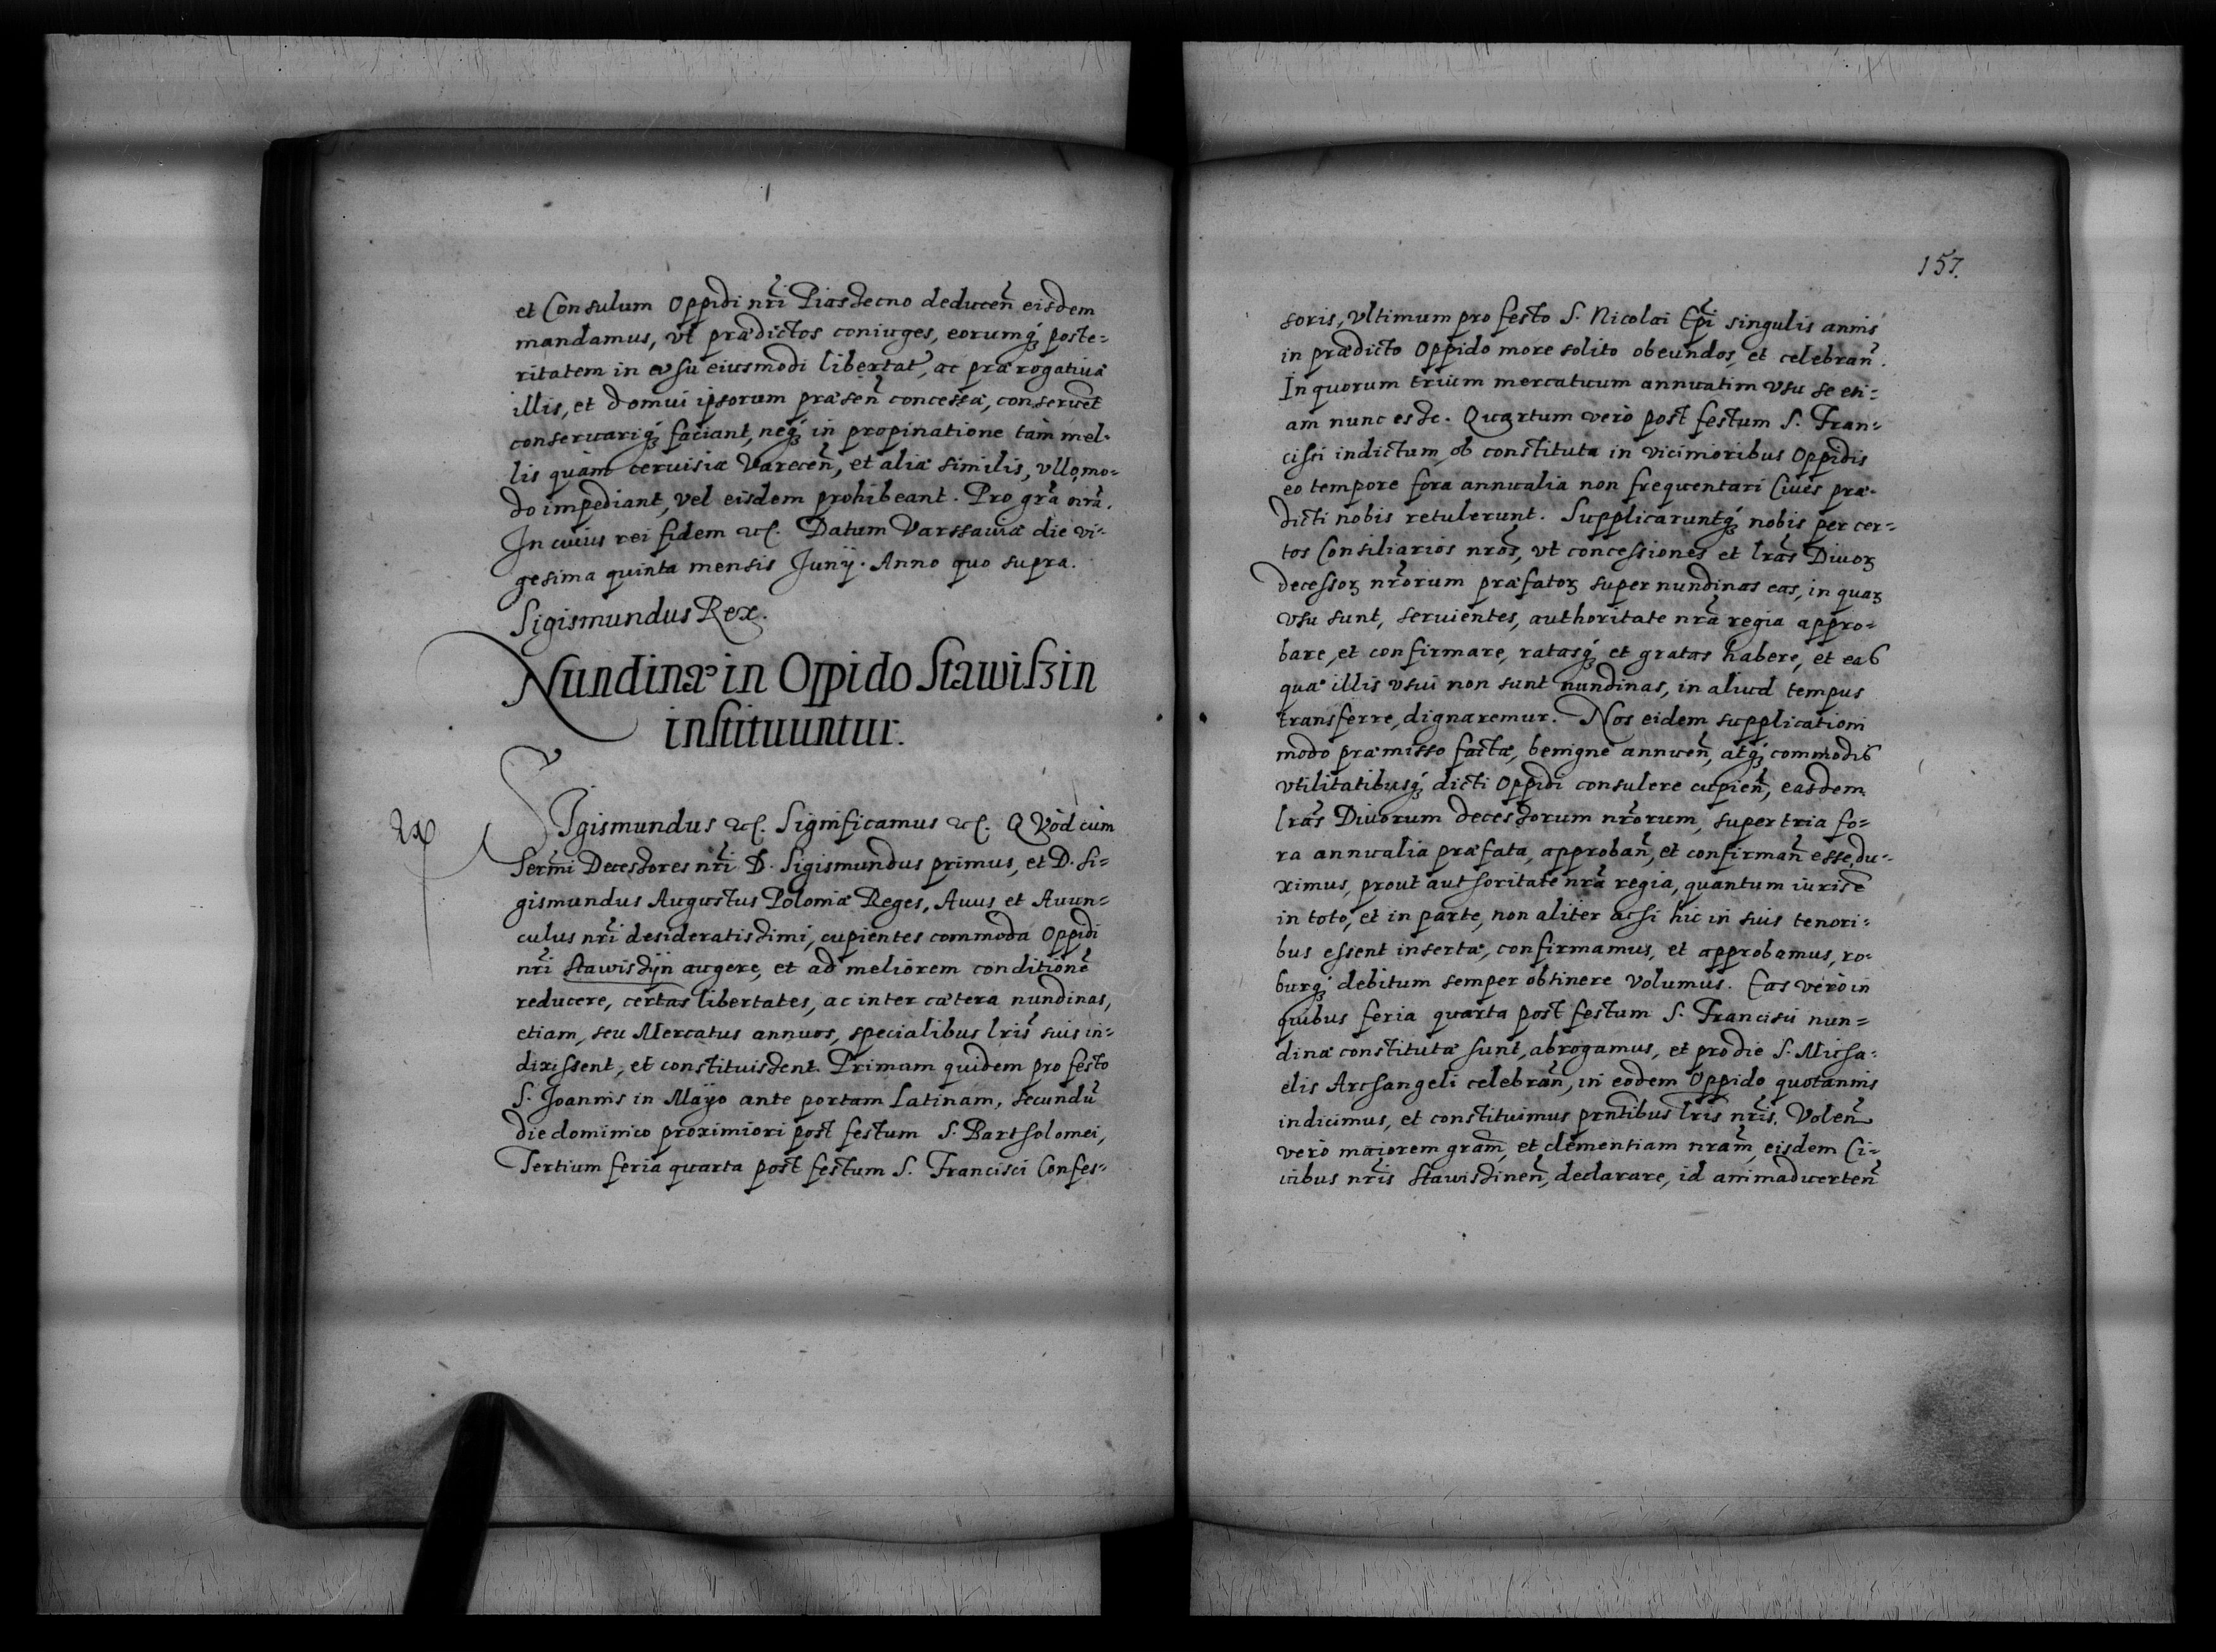 et Consulum Oppidi nr̃i Piasecno deducen̄ eisdem
mandamus, vt prædictos coniuges, eorumq́ꝫ poste=
ritatem in vsu eiusmodi libertat̃, ac prærogatiuæ
illis, et domui ipsorum præsen̄ concessæ, conseruēt
conseruariq́ꝫ faciant, neq́ꝫ in propinatione tàm mel-
lis quàm ceruisiæ Varecen̄, et aliæ similis, vllo, mo=
do impediant, vel eisdem prohibeant. Pro gr̃a nr̃a.
In cuius rei fidem etc. Datum Varssauiæ die vi-
gesima quinta mensis Junij. Anno quo supra.
Sigismundus Rex.
Nundinæ in Oppido Stawiszin
instituuntur.
Sigismundus etc. Significamus etc. QVòd cùm
Serm̄i Decessores nr̃i D. Sigismundus primus, et D. Si=
gismundus Augustus Poloniæ Reges, Auus et Auun=
culus nr̃i desideratissimi, cupientes commoda Oppidi
nr̃i Stawissijn augere, et ad meliorem conditionē
reducere, certas libertates, ac inter cætera nundinas,
etiam, seu Mercatus annuos, specialibus lr̃is suis in=
dixissent, et constituissent. Primam quidem pro festo
S. Joannis in Mayo ante portam Latinam, secundū
die dominico proximiori post festum S. Bartholomei,
Tertium feria quarta post festum S. Francisci Confes=
157.
soris, Vltimum pro festo S. Nicolai Ep̃i singulis annis
in prædicto Oppido more solito obeundos, et celebran̄.
In quorum trium mercatuum annuatim vsu se eti=
am nunc esse. Quartum verò post festum S. Fran=
cisci indictum, ob constituta in vicinioribus Oppidis
eo tempore fora annualia non frequentari Ciues præ=
dicti nobis retulerunt. Supplicaruntq́ꝫ nobis per cer=
tos Consiliarios nr̃os, vt concessiones et lr̃as Diuoꝝ
decessoꝝ nr̃orum præfatoꝝ super nundinas eas, in quaꝝ
vsu sunt, seruientes, authoritate nr̃a regia appro=
bare, et confirmare, ratasq́ꝫ et gratas habere, et eas
quæ illis vsui non sunt nundinas, in aliud tempus
transferre, dignaremur. Nos eidem supplicationi
modo præmisso factæ, benignè annuen̄, atq́ꝫ commodis
vtilitatibusq́ꝫ dicti Oppidi consulere cupien̄, easdem
lr̃as Diuorum decessorum nr̃orum, super tria fo=
ra annualia præfata, approban̄, et confirman̄ esse, du=
ximus, prout authoritate nr̃a regia, quantum iuris ē
in toto, et in parte, non aliter ac si hic in suis tenori=
bus essent insertæ, confirmamus, et approbamus, ro=
burq́ꝫ debitum semper obtinere volumus. Eas verò in
quibus feria quarta post festum S. Francisci nun=
dinæ constitutæ sunt, abrogamus, et pro die S. Micha=
elis Archangeli celebran̄, in eodem Oppido quotannis
indicimus, et constituimus prntibus lr̃is nr̃is. Volen̄
verò maiorem gram̄, et clementiam nram̄, eisdem Ci=
uibus nr̃is Stawissinen̄, declarare, id animaduerten̄